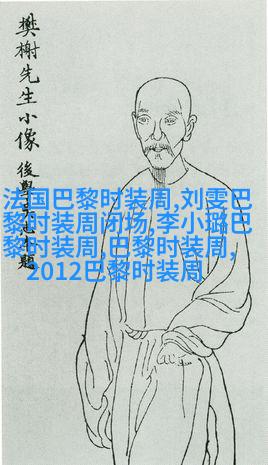 樊榭先生小像
後學題
法国巴黎时装周,刘雯巴
黎时装周闭场,李小璐巴
黎时装周,巴黎时装周,
2012巴黎时装周